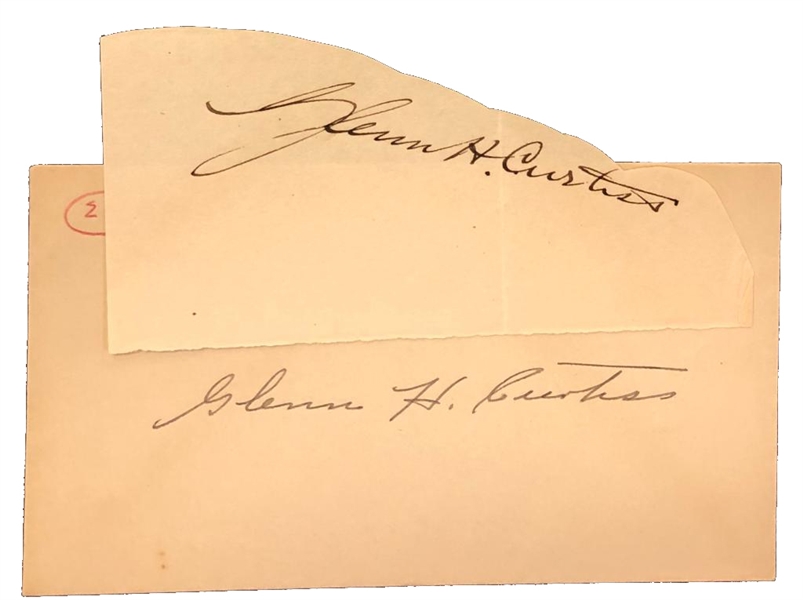 Glenn H. Curtiss
Σ
Glenn H. Curtiss